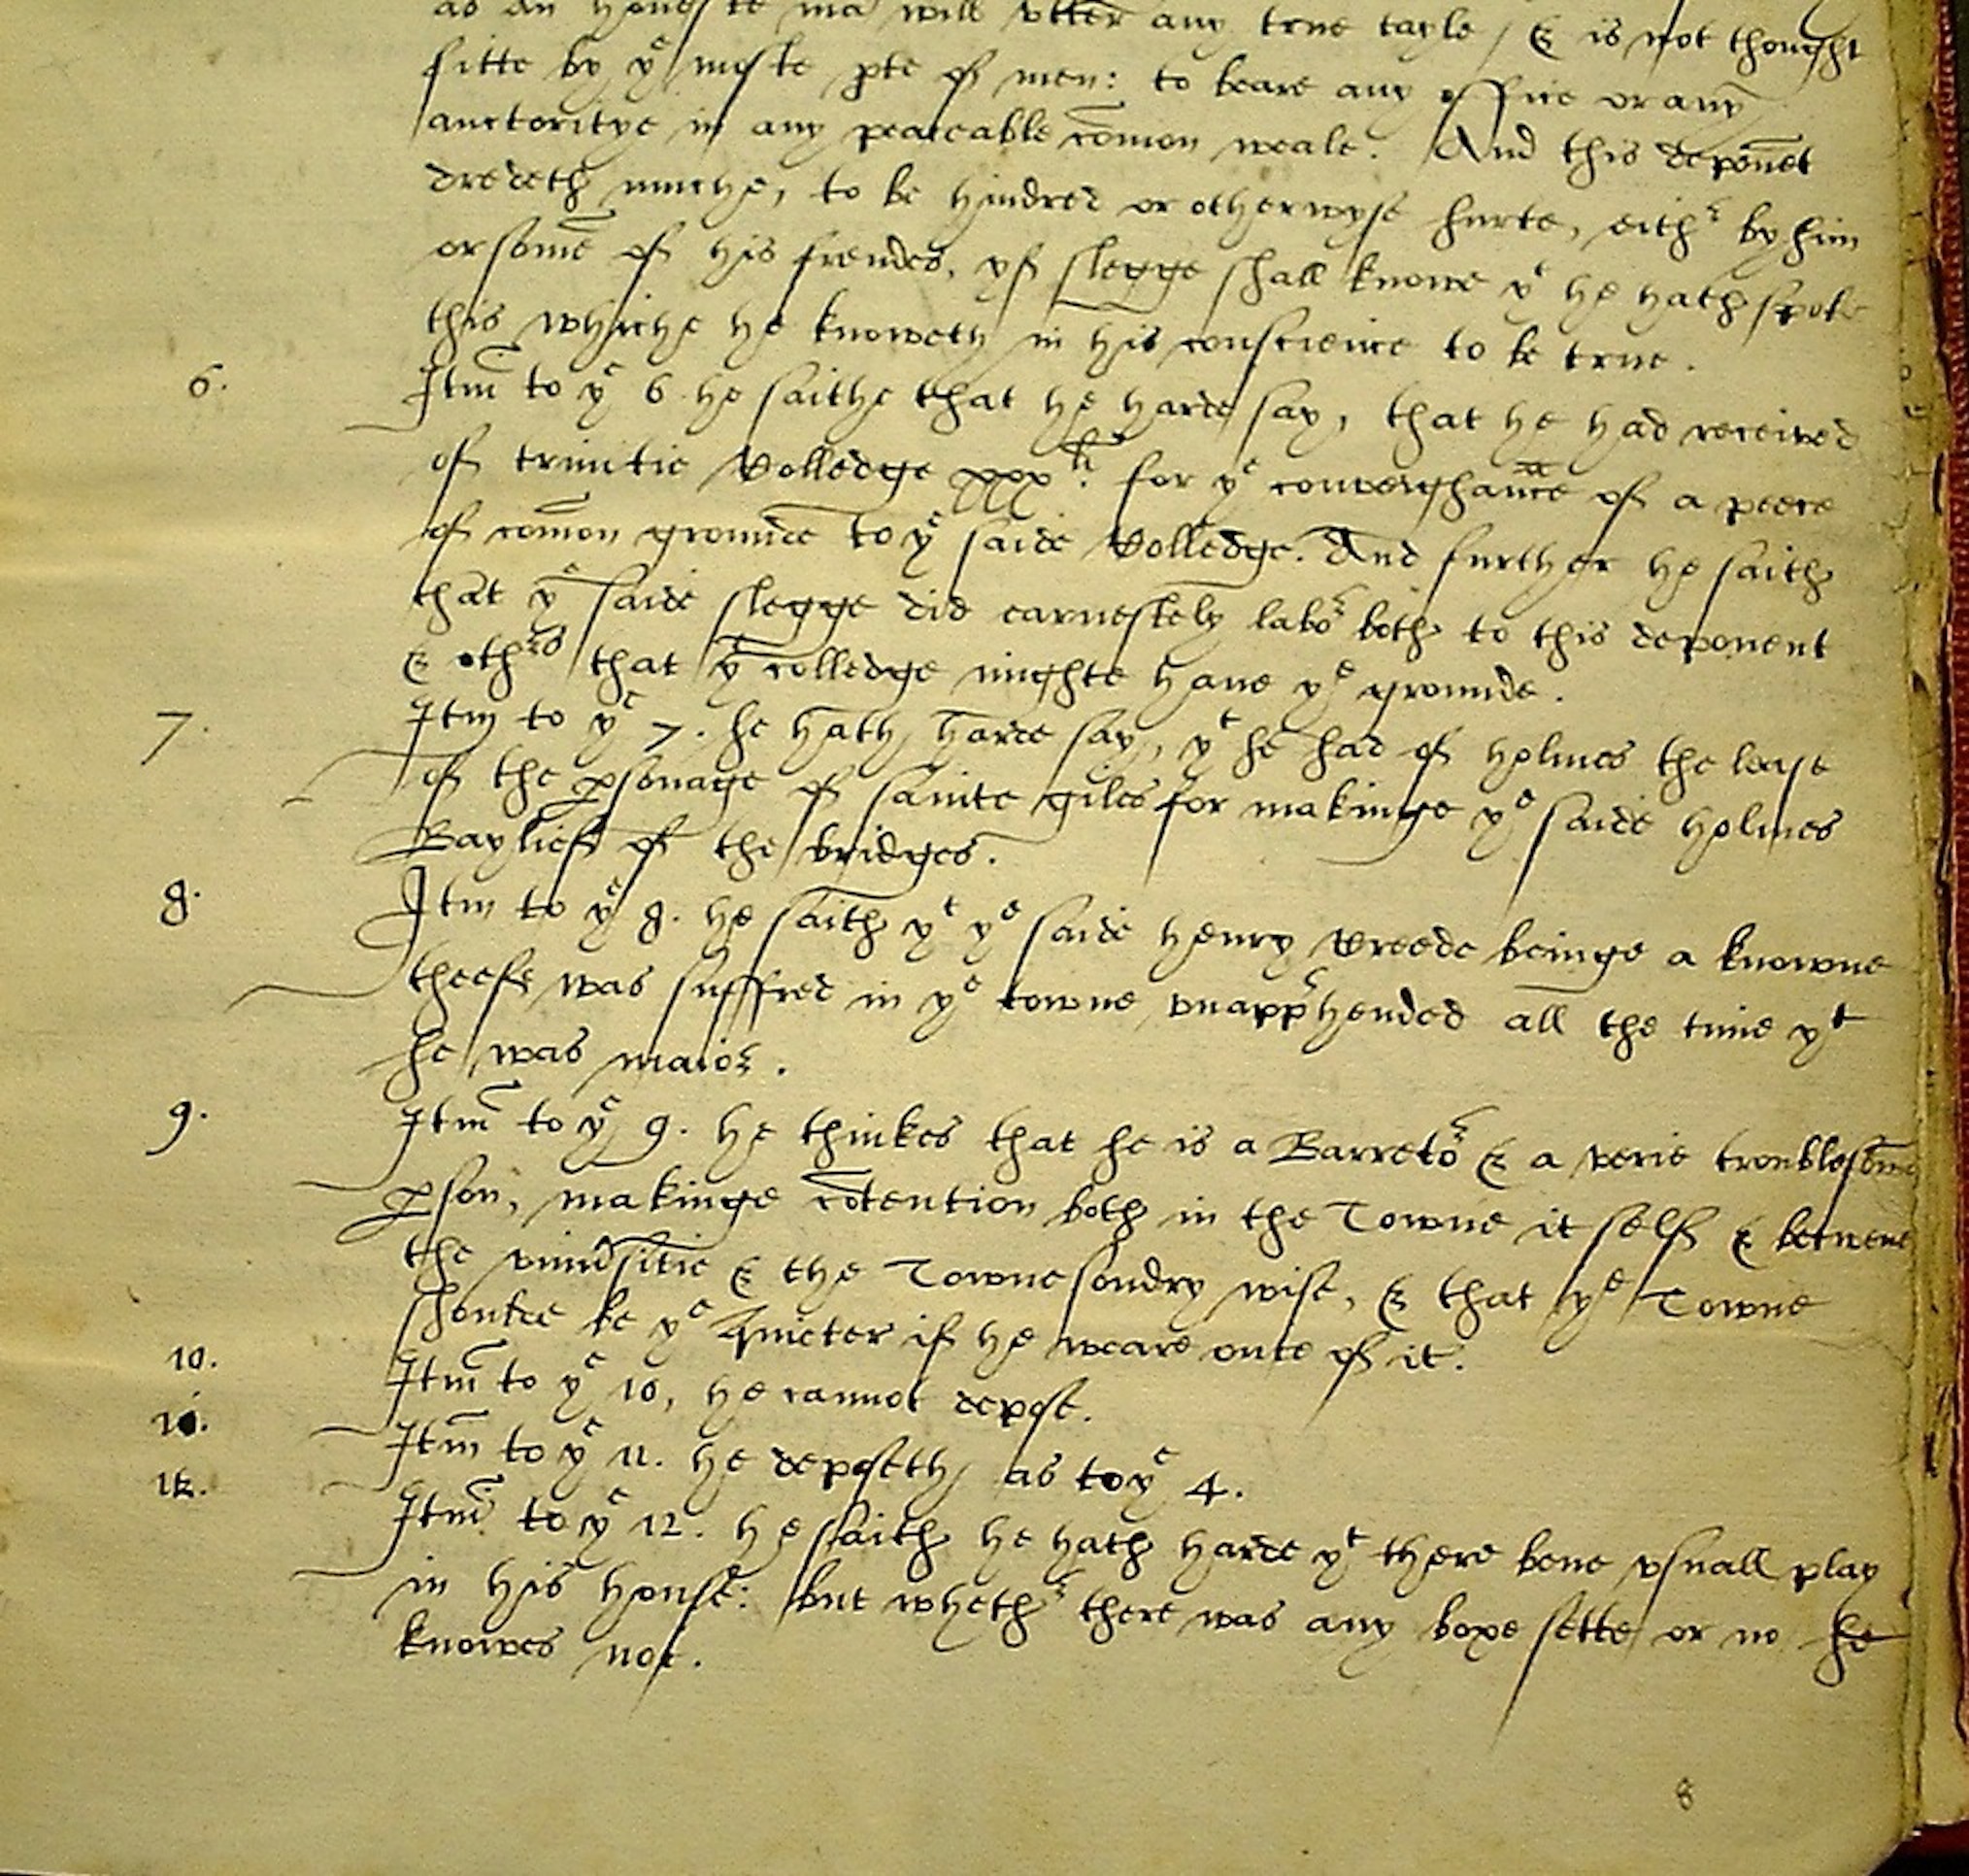 as an honeste mā will vtter any true tayle, & is not thought
fitte by yͤ moste pte of men: to beare any office or any
auctoritye in any peaceable cōmon weale. And this deponēt
dredeth muche, to be hindred or otherwyse hurte, eithʳ by him
or some of his frendes, yf slegge shall knowe yͭ he hath spoke
this whiche he knoweth in his conscience to be true.
6. Itm̄ to yͤ 6 he saithe that he harde say, that he had received
of trinitie Colledge xxxˡⁱ. for yͤ conveighaunce of a peece
of cōmon grounde to yͤ saide Colledge. And further he saith
that yͤ saide slegge did earnestely laboʳ both to this deponent
& othʳs that yͤ colledge mighte haue yͤ grounde.
7. Itm to yͤ 7. he hath harde say, yͭ he had of holmes the lease
of the psonage of sainte giles for makinge yͤ saide holmes
Baylief of the bridges.
8. Itm to yͤ 8. he saith yͭ yͤ saide henry breede beinge a knowne
theefe was suffred in yͤ towne vnappʳhended all the time yͭ
he was maioʳ.
9. Itm̄ to yͤ 9. he thinkes that he is a Barretoʳ & a verie troublesōme
pson, makinge cōtention both in the Towne it self & betwene
the vniuʳsitie & the Towne sondry wise, & that yͤ Towne
shoulde be yͤ quieter if he weare oute of it.
10. Itm̄ to yͤ 10, he cannot depose.
11. Itm̄ to yͤ 11. he deposeth as to yͤ 4.
12. Itm̄ to yͤ 12. he saith he hath harde yͭ there bene vsuall play
in his house: but whethʳ there was any boxe sette or no he
knowes not.
8